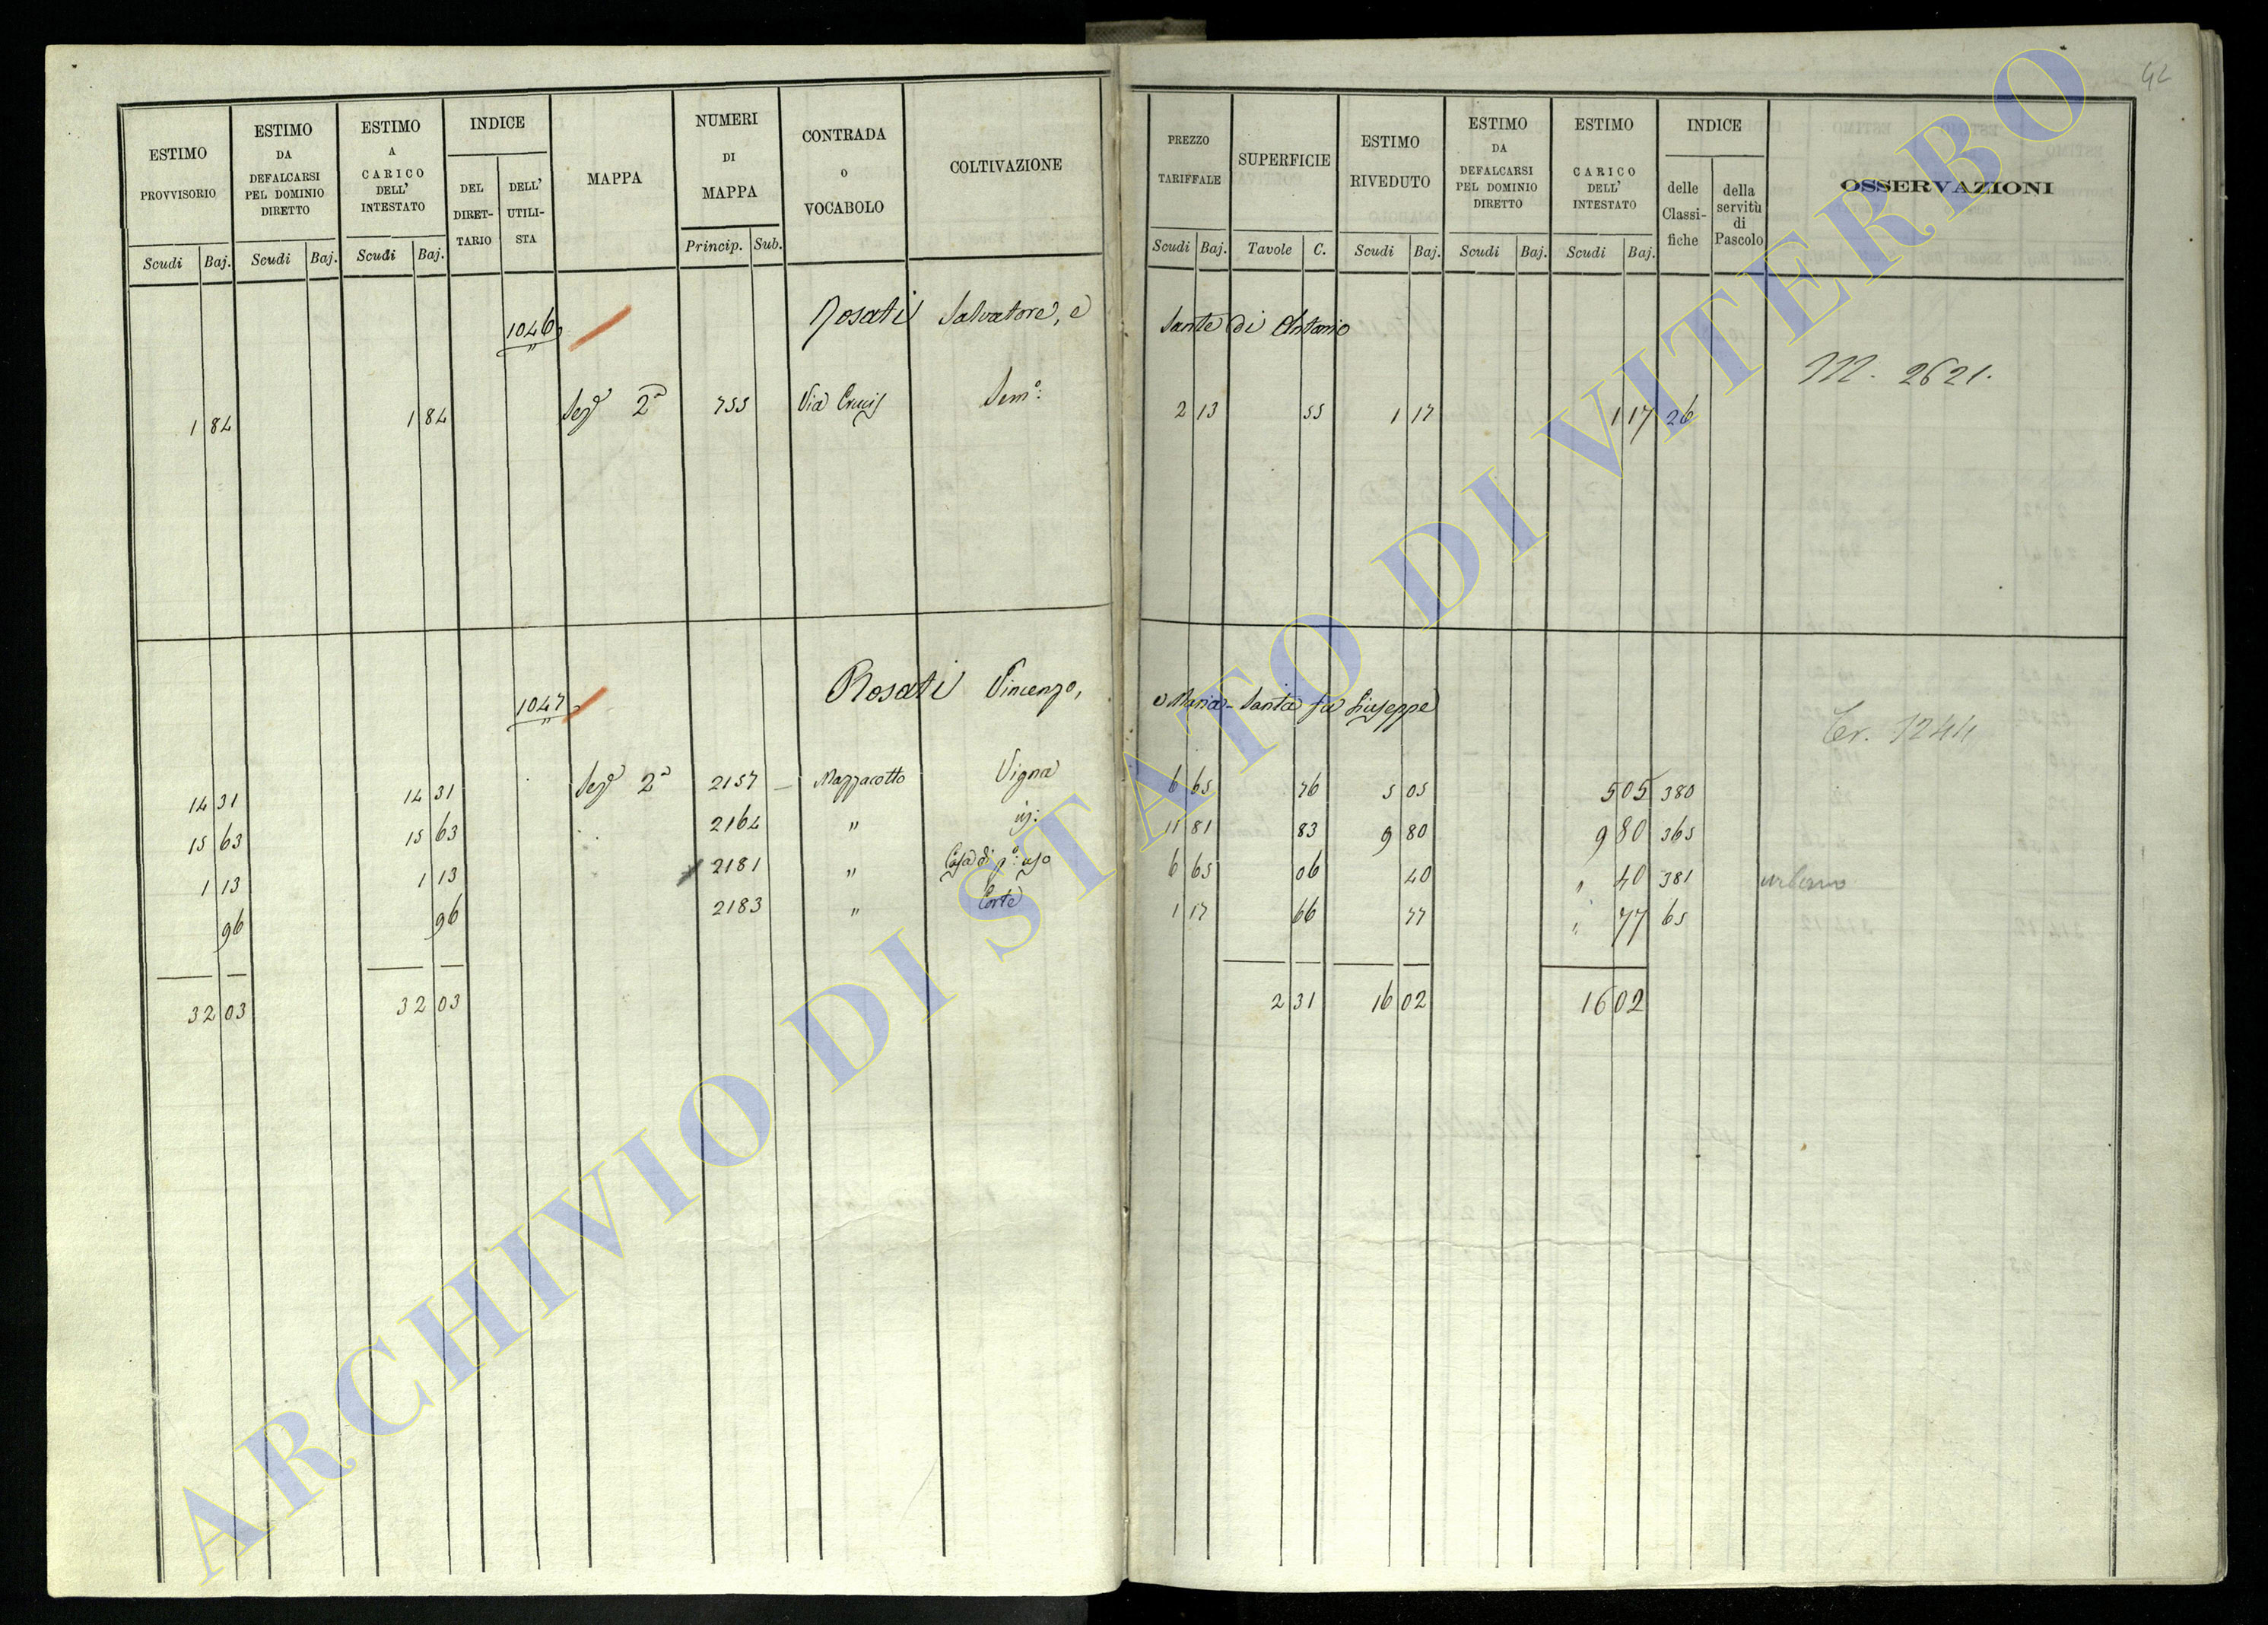 42
ESTIMO PROVVISORIO
ESTIMO DA DEFALCARSI PEL DOMINIO DIRETTO
ESTIMO A CARICO DELL' INTESTATO
INDICE
DEL DIRET-TARIO
DELL' UTILI-STA
MAPPA
NUMERI DI MAPPA
CONTRADA O VOCABOLO
COLTIVAZIONE
Scudi Baj. Scudi Baj. Scudi Baj. Princip. Sub.
PREZZO TARIFFALE
SUPERFICIE
ESTIMO RIVEDUTO
ESTIMO DA DEFALCARSI PEL DOMINIO DIRETTO
ESTIMO CARICO DELL' INTESTATO
INDICE
delle Classi-fiche
della servitù di Pascolo
OSSERVAZIONI
Scudi Baj. Tavole C. Scudi Baj. Scudi Baj. Scudi Baj.
1046 Rosati Salvatore, e Sante di Antonio
M. 2621.
1 84 1 84 Sezе 2a 755 Via Crucis Semo: 2 13 55 1 17 1 17 26
1047 Rosati Vincenzo, e Maria-Santa fu Giuseppe
Cer. 1244
14 31 14 31 Seze 2a 2157 — Mazzacotto Vigna 6 65 76 5 05 5 05 380
15 63 15 63 2164 " id: 11 81 83 9 80 9 80 365
1 13 1 13 2181 " Casa di po: uso 6 65 06 40 " 40 381 urbano
96 96 2183 " Corte 1 17 66 77 " 77 65
32 03 32 03 2 31 16 02 16 02
ARCHIVIO DI STATO DI VITERBO